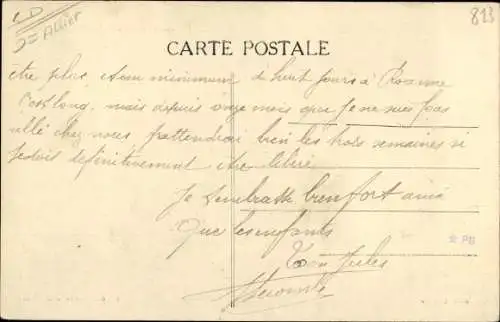 CD
03 Allier
813
CARTE POSTALE
être plus. Au minimum à huit jours à Roanne
C'est long. mais depuis onze mois que Je ne suis pas
allé chez nous Jattendrai bien les trois semaines si
Je dois définitivement être libéré.
Je t'embrasse bien fort ainsi
Que les enfants
Ton Jules